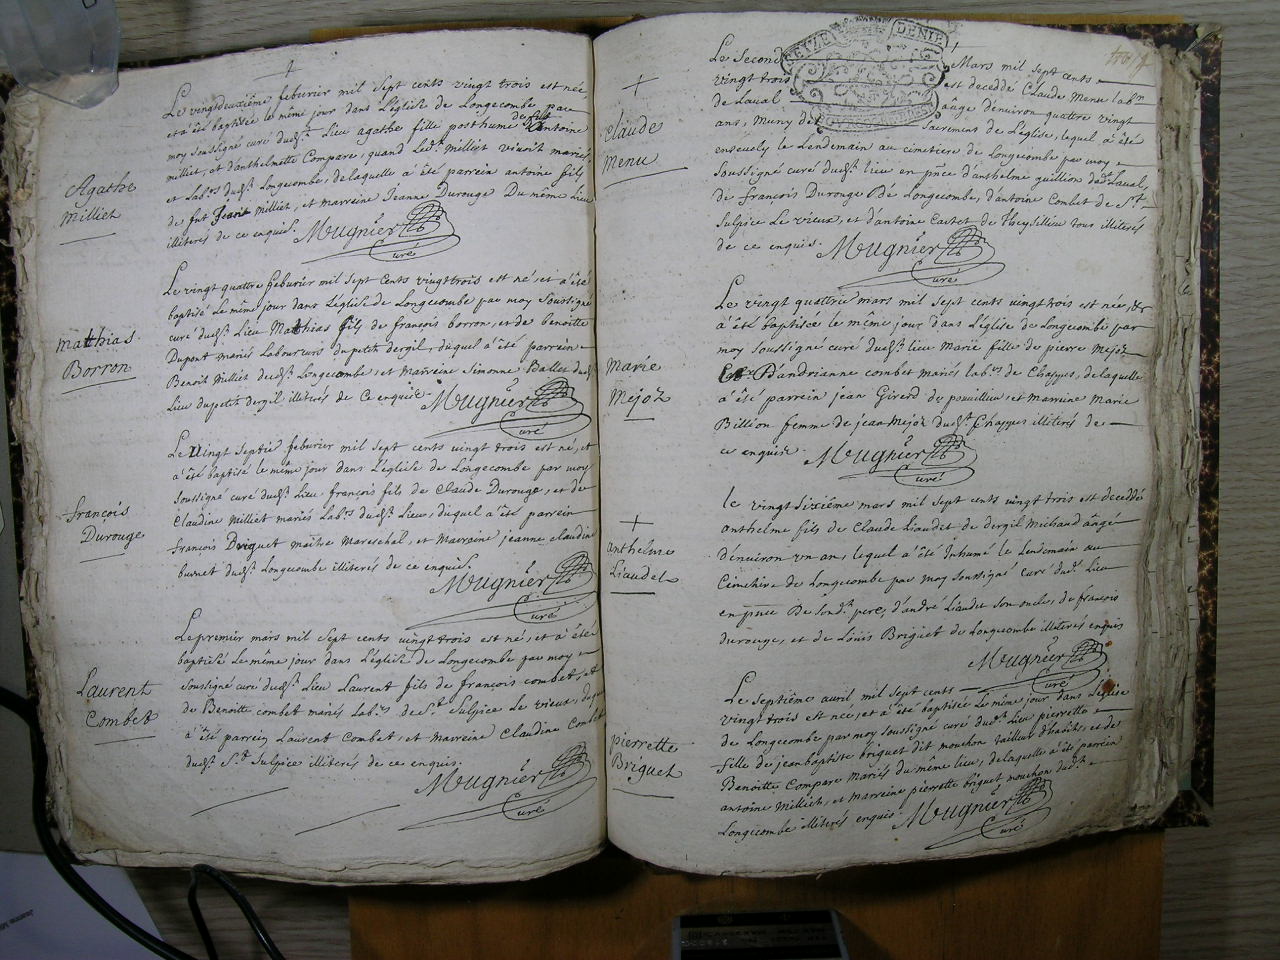 Agathe
Milliet
Le vingtdeuxiême feburier mil sept cents vingt trois est née
et a été baptisée le même jour dans L'église de Longecombe par
moy soussigné curé dudt. Lieu agathe fille posthume de feu Antoine
milliet, et d'anthelmette Compare, quand Led. Milliet vivoit mariés,
et Labrs dudt. Longecombe, de laquelle a été parrein antoine fils
de fut Jean Milliet, et marreine Jeanne Durouge Du même Lieu
illiterés de ce enquis. Mugnier
curé
Matthias
Borron
Le vingt quatre feburier mil sept Cents vingttrois est né et a été
baptisé Le même jour dans L'église de Longecombe par moy soussigné
curé dudt. Lieu Matthias fils de françois borron, et de benoitte
Dupont mariés Laboureurs du petit dergil, duquel a été parrein
Benoit Milliet dudt. Longecombe, et Marreine Simonne Ballet dud
Lieu du petit dergil illiterés de Ce enquis. Mugnier
Curé
françois
Durouge
Le vingt septié feburier mil sept cents vingt trois est né, et
a été baptisé le même jour dans L'église de Longecombe par moy
soussigné curé dudt. Lieu, françois fils de Claude Durouge, et de
Claudine Milliet mariés Labrs. dudt. Lieu, duquel a été parrein
françois Briguet maitre mareschel, et Marraine jeanne claudine
burnet dudt. Longecombe illiterés de ce enquis.
Mugnier
Curé
Laurent
Combet
Le premier mars mil sept cents vingt trois est né, et a été
baptisé Le même jour dans L'église de Longecombe par moy
soussigné curé dudt. Lieu Laurent fils de françois combet, et
de Benoitte combet mariés Labrs. de St. Sulpice Le vieux, duquel
a été parrein Laurent Combet, et Marreine Claudine Combet
dudt. St. Sulpice illiterés de ce enquis.
Mugnier
Curé
Claude
Menu
Le Second Mars mil sept cents
vingt trois est decedé Claude Menu labr
de Laval âage denviron quattre vingt
ans, muny de sacrement de L'église, lequel a été
ensevely le Lendemain au cimetière de Longecombe par moy
soussigné curé dudt. lieu en pnce d'anthelme guillion dudt Laval,
de françois Durouge De Longecombe, d'antoine Combet de St.
Sulpice Le vieux, et d'antoine Castet de Theysillieu tous illiterés
de ce enquis. Mugnier
Curé
Marie
Mejoz
Le vingt quattre mars mil sept cents vingttrois est née, &
a été baptisée le même jour dans L'église de Longecombe par
moy soussigné curé dudt. lieu Marie fille de pierre Mejoz
D'andrianne combet mariés labrs. de Chappes, de laquelle
a été parrein jean Girerd de pouvillieu et marreine Marie
Billion femme de jean Mejoz dudt. Chappes illiterés de
ce enquis. Mugnier
Curé
anthelme
Liaudet
le vingt sixiéme mars mil sept cents vingt trois est deceddé
anthelme fils de Claude Liaudet de dergil Michaud ângé
d'environ un an, lequel a été Inhumé le Lendemain au
Cimetière de Longecombe par moy soussigné curé dud. Lieu
en pnce De sond. pere, d'andré Liaudet son oncle, de françois
durouge, et de Louis Briguet de Longecombe illiterés enquis
Mugnier
Curé
pierrette
Briguet
Le septiéme avril mil sept cents
vingt trois est née, et a été baptisée Le même jour dans L'église
de Longecombe par moy soussigné curé dudt. Lieu pierrette
fille de jean baptiste briguet dit mouchon tailleur d'habits, et de
Benoitte Compare Mariés du même lieu, de laquelle a été parrein
antoine Milliet, et marreine pierrette briguet mouchon dudt.
Longecombe illiterés enquis. Mugnier
Curé